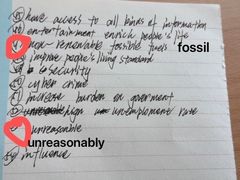 have access to all kinds of information
entertainment enrich people's life
non-renewable fossible fuels fossil
improve people's living standard
security
cyber crime
increase burden on goverment
unemploment rate
unreasonable
unreasonably
influence